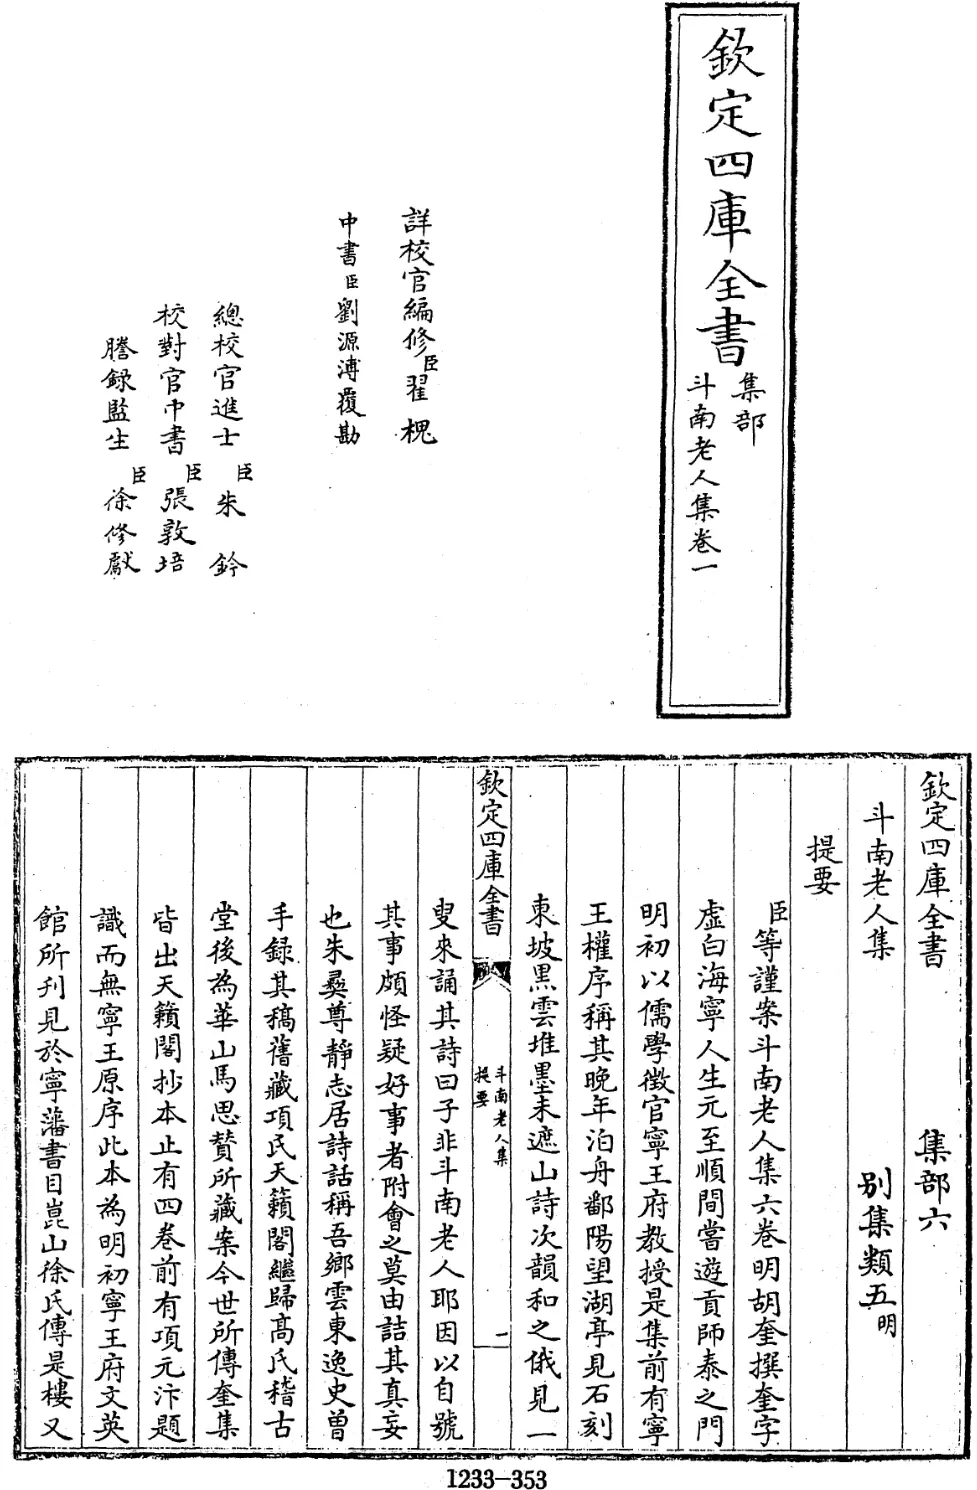 欽定四庫全書
集部
斗南老人集卷一
詳校官編修臣翟槐
中書臣劉源溥覆勘
總校官進士臣朱鈐
校對官中書臣張敦培
謄錄監生臣徐修獻
欽定四庫全書 集部六
斗南老人集 别集類五明
提要
臣等謹案斗南老人集六卷明胡奎撰奎字
虛白海寧人生元至順間嘗遊貢師泰之門
明初以儒學徵官寧王府教授是集前有寧
王權序稱其晚年泊舟鄱陽望湖亭見石刻
東坡黑雲堆墨未遮山詩次韻和之俄見一
欽定四庫全書
斗南老人集
提要
一
叟來誦其詩曰子非斗南老人耶因以自號
其事頗怪疑好事者附會之莫由詰其真妄
也朱彝尊靜志居詩話稱吾鄉雲東逸史曾
手録其稿舊藏項氏天籟閣繼歸髙氏稽古
堂後為華山馬思賛所藏案今世所傳奎集
皆出天籟閣抄本止有四卷前有項元汴題
識而無寧王原序此本為明初寧王府文英
館所刋見於寧藩書目崑山徐氏傳是樓又
1233-353